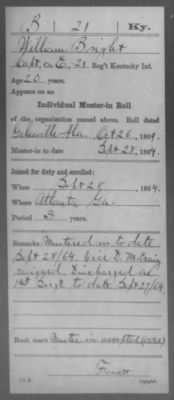 B | 21 | Ky.
William Bright
Capt., Co. E, 21 Reg't Kentucky Inf.
Age 20 years.
Appears on an
Individual Muster-in Roll
of the organization named above. Roll dated
Gatesville Ala. Oct 26, 1864.
Muster-in to date Sept 28, 1864.
Joined for duty and enrolled:
When Sept 28, 1864.
Where Atlanta Ga.
Period 3 years.
Remarks: Mustered in to date
Sept 28/64. Vice
resigned. Discharged as
1st Sergt. to date Sept 27/64.
Book mark:
Copyist.